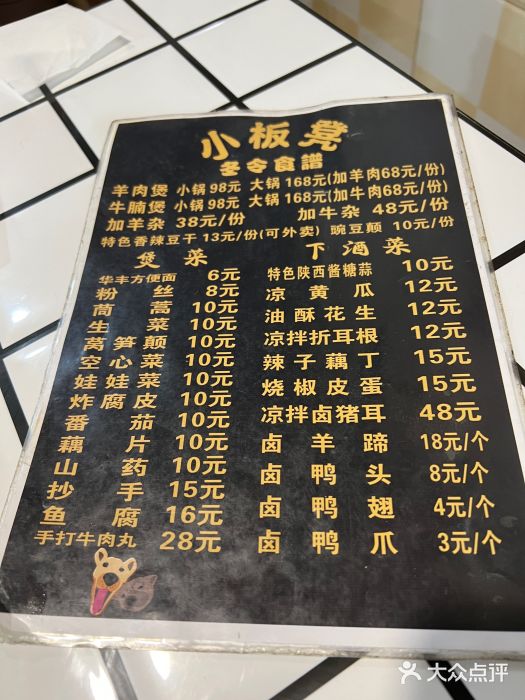 小板凳
冬令食譜
羊肉煲 小锅 98元 大锅 168元(加羊肉68元/份)
牛腩煲 小锅 98元 大锅 168元(加牛肉68元/份)
加羊杂 38元/份 加牛杂 48元/份
特色香辣豆干 13元/份(可外卖) 豌豆颠 10元/份
煲菜
华丰方便面 6元
粉丝 8元
茼蒿 10元
生菜 10元
莴笋颠 10元
空心菜 10元
娃娃菜 10元
炸腐皮 10元
番茄 10元
藕片 10元
山药 10元
抄手 15元
鱼腐 16元
手打牛肉丸 28元
下酒菜
特色陕西酱糖蒜 10元
凉黄瓜 12元
油酥花生 12元
凉拌折耳根 12元
辣子藕丁 15元
烧椒皮蛋 15元
凉拌卤猪耳 48元
卤羊蹄 18元/个
卤鸭头 8元/个
卤鸭翅 4元/个
卤鸭爪 3元/个
大众点评